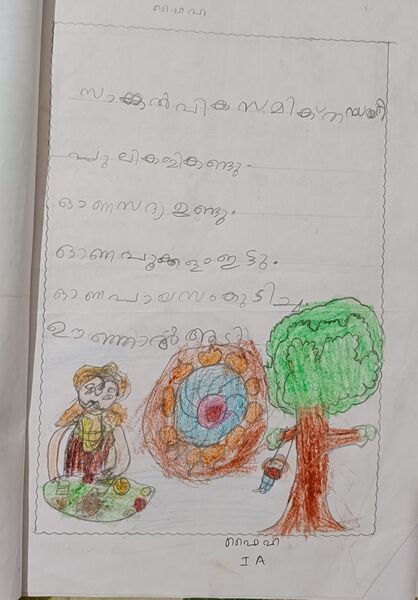 ഫൈഹ
സാങ്കൽപിക
പുലികളികണ്ടു.
ഓണസദ്യ ഉണ്ടു.
ഓണപൂക്കളംഇട്ടു.
ഓണപായസംകുടിച്ചു
ഊഞ്ഞാൽ ആടി
ഫൈഹ
I A